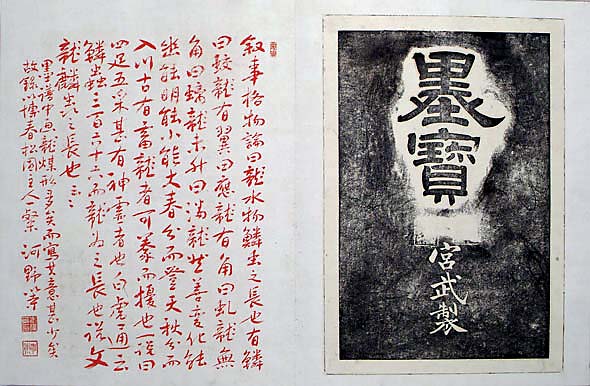 墨寶
宮武製
叙事格物論曰龍水物鱗虫之長也有鱗
曰蛟龍有翼曰應龍有角曰虬龍無
角曰螭龍未升曰蟠龍善变化能
幽能明能小能大春分而登天秋分而
入川古有畜龍者可豢而擾也説曰
四足五采甚有神霊者也白虎通云
鱗虫三百六十六而龍為之長也説文
龍鱗虫之長也云々
墨譜中画龍煤形多矣而寫其意甚少矣
故録以博春松園主人粲 河野